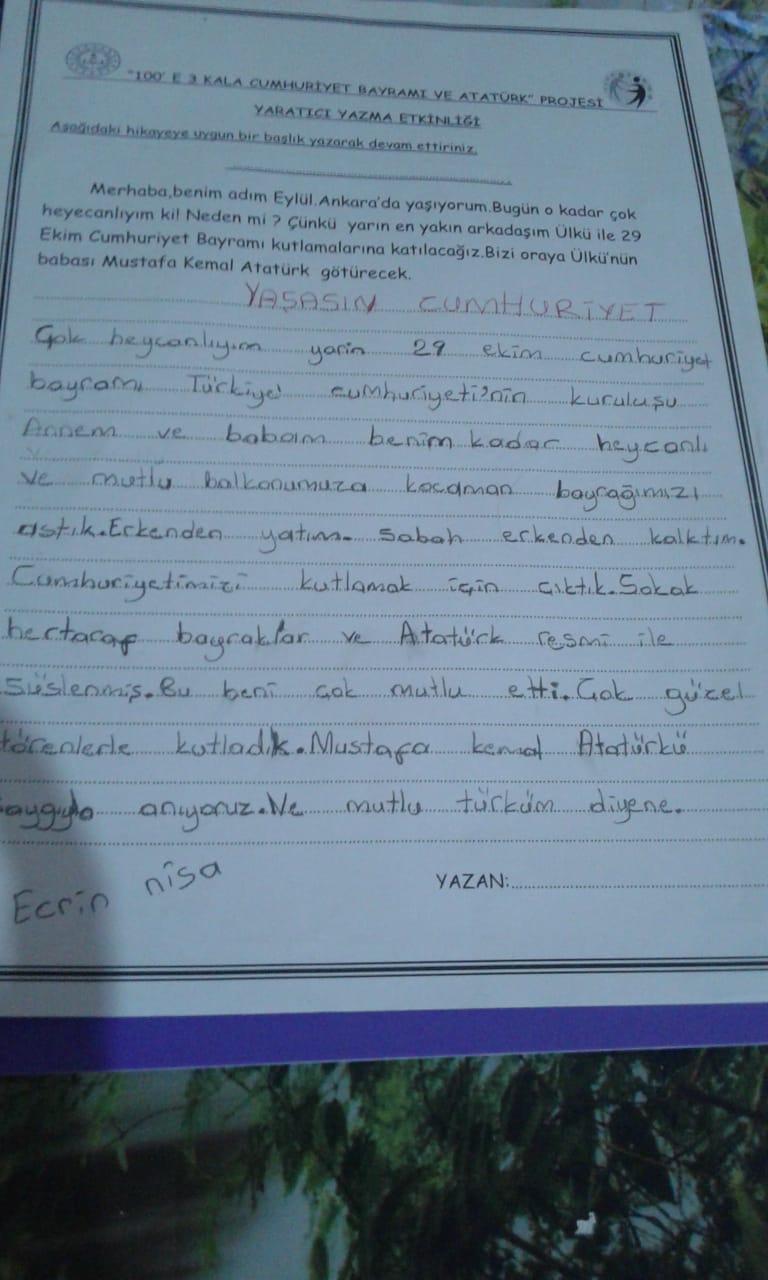 "100' E 3 KALA CUMHURİYET BAYRAMI VE ATATÜRK" PROJESİ
YARATICI YAZMA ETKİNLİĞİ
Aşağıdaki hikayeye uygun bir başlık yazarak devam ettiriniz.
Merhaba,benim adım Eylül.Ankara'da yaşıyorum.Bugün o kadar çok
heyecanlıyım ki! Neden mi ? Çünkü yarın en yakın arkadaşım Ülkü ile 29
Ekim Cumhuriyet Bayramı kutlamalarına katılacağız.Bizi oraya Ülkü'nün
babası Mustafa Kemal Atatürk götürecek.
YAŞASIN CUMHURİYET
Çok heycanlıyım yarin 29 ekim cumhuriyet
bayramı Türkiye cumhuriyeti'nin kuruluşu
Annem ve babam benim kadar heycanlı
ve mutlu balkonumuza kocaman bayrağımızı
astık.Erkenden yatım. Sabah erkenden kalktım.
Cumhuriyetimizi kutlamak için çıktık.Sokak
hertaraf bayraklar ve Atatürk resmi ile
süslenmiş.Bu beni çok mutlu etti.Çok güzel
törenlerle kutladık.Mustafa kemal Atatürkü
saygıyla anıyoruz.Ne mutlu türküm diyene.
Ecrin nisa
YAZAN: